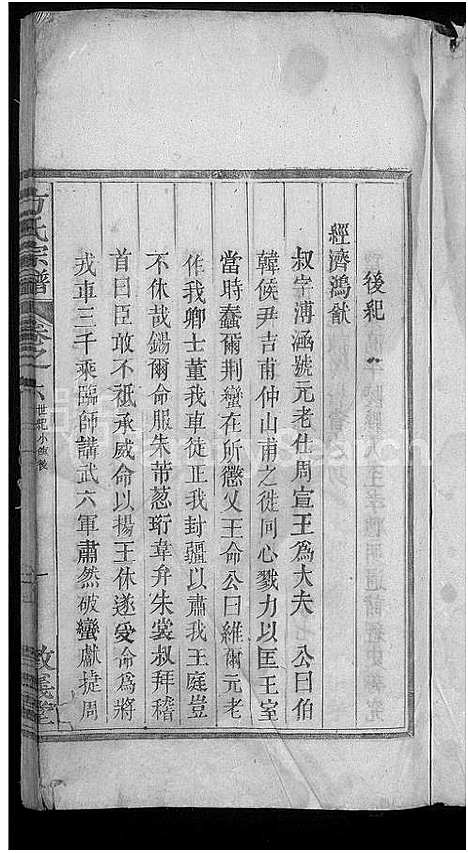 後紀
經濟鴻猷
叔字溥涵號元老仕周宣王爲大夫 公曰伯
韓侯尹吉甫仲山甫之徙同心戮力以匡王室
當時蠢爾荆蠻在所懲乂王命公曰維爾元老
作我卿士董我車徒正我封疆以肅我王庭豈
不休哉錫爾命服朱芾葱珩韋弁朱裳叔拜稽
首曰臣敢不祇承威命以揚王休遂受命爲將
戎車三千乘臨師講武六軍肅然破蠻獻捷周
方氏宗譜
卷之
世紀小傳後
一